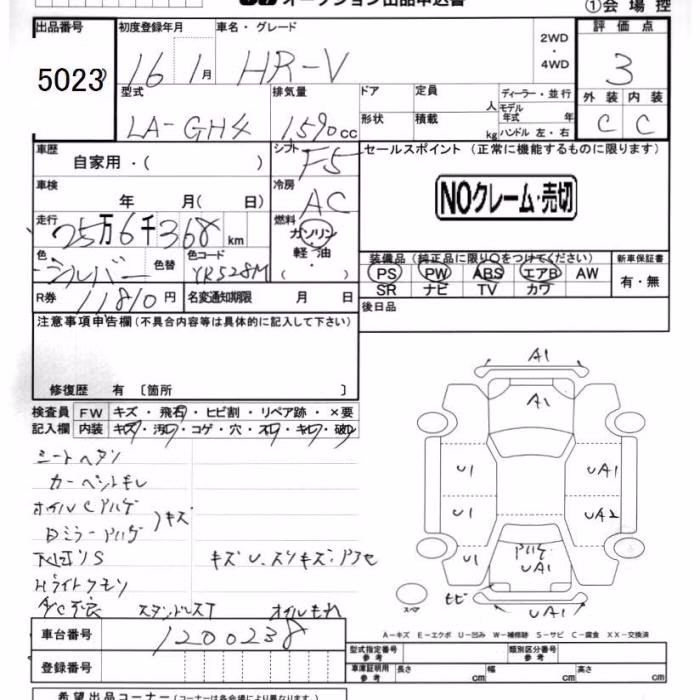 オークション出品申込書
①会場控
出品番号 初度登録年月 車名・グレード 2WD・4WD 評価点
5023 16 1月 HR-V 3
型式 排気量 ドア 定員 人 ディーラー・並行
外装 内装
LA-GH4 1590cc 形状 積載 kg モデル年式 年
ハンドル 左・右
C C
車歴 自家用・( ) シフト F5 セールスポイント (正常に機能するものに限ります)
車検 年 月( 日) 冷房 AC
NOクレーム・売切
走行 25万6千368km 燃料 ガソリン・軽油・( )
色 シルバー 色替 色コード YR528M
装備品 (純正品に限り○をつけてください) 新車保証書
PS PW ABS エアB AW 有・無
SR ナビ TV カワ
R券 11,810円 名変通知期限 月 日 後日品
注意事項申告欄(不具合内容等は具体的に記入して下さい)
修復歴 有 〔箇所 〕
検査員 FW キズ・飛石・ヒビ割・リペア跡・×要
記入欄 内装 キズ・汚レ・コゲ・穴・スレ・キレ・破レ
A1
A1
U1 UA1
U1 UA2
U1 UA1
UA1
キズ
スペア
A-キズ E-エクボ U-凹み W-補修跡 S-サビ C-腐食 XX-交換済
車台番号 1200238
型式指定番号 参考 類別区分番号 参考
登録番号
車庫証明用 参考 長さ cm 幅 cm 高さ cm
希望出品コーナー(コーナーは各会場により異なります。)